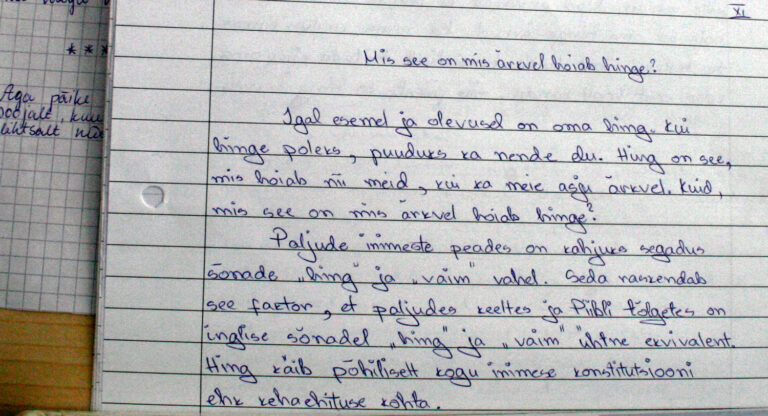 * * *
Aga päike
XI
Mis see on mis ärkvel hoiab hinge?
Igal esemel ja olevusel on oma hing. Kui
hinge poleks, puuduks ka nende elu. Hing on see,
mis hoiab nii meid, kui ka meie asju ärkvel. Kuid,
mis see on mis ärkvel hoiab hinge?
Paljude inimeste peades on kahjuks segadus
sõnade „hing" ja „vaim" vahel. Seda raskendab
see faktor, et paljudes keeltes ja Piibli tõlgetes on
inglise sõnadel „hing" ja „vaim" ühtne ekvivalent.
Hing käib põhiliselt kogu inimese konstitutsiooni
ehk kehaehituse kohta.